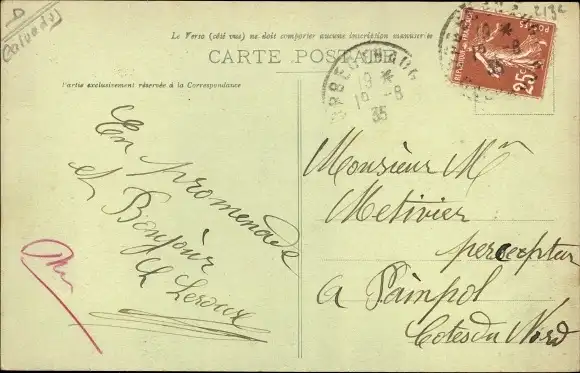 (Calvados)
2132
Le Verso (côté vue) ne doit comporter aucune inscription manuscrite
CARTE POSTALE
Partie exclusivement réservée à la Correspondance
19 *
19 - 8
35
POSTES
25c
En promenade
et Bonjour
Ch Leroux
Monsieur Mn
Metivier
percepteur
a Paimpol
Cotes du Nord